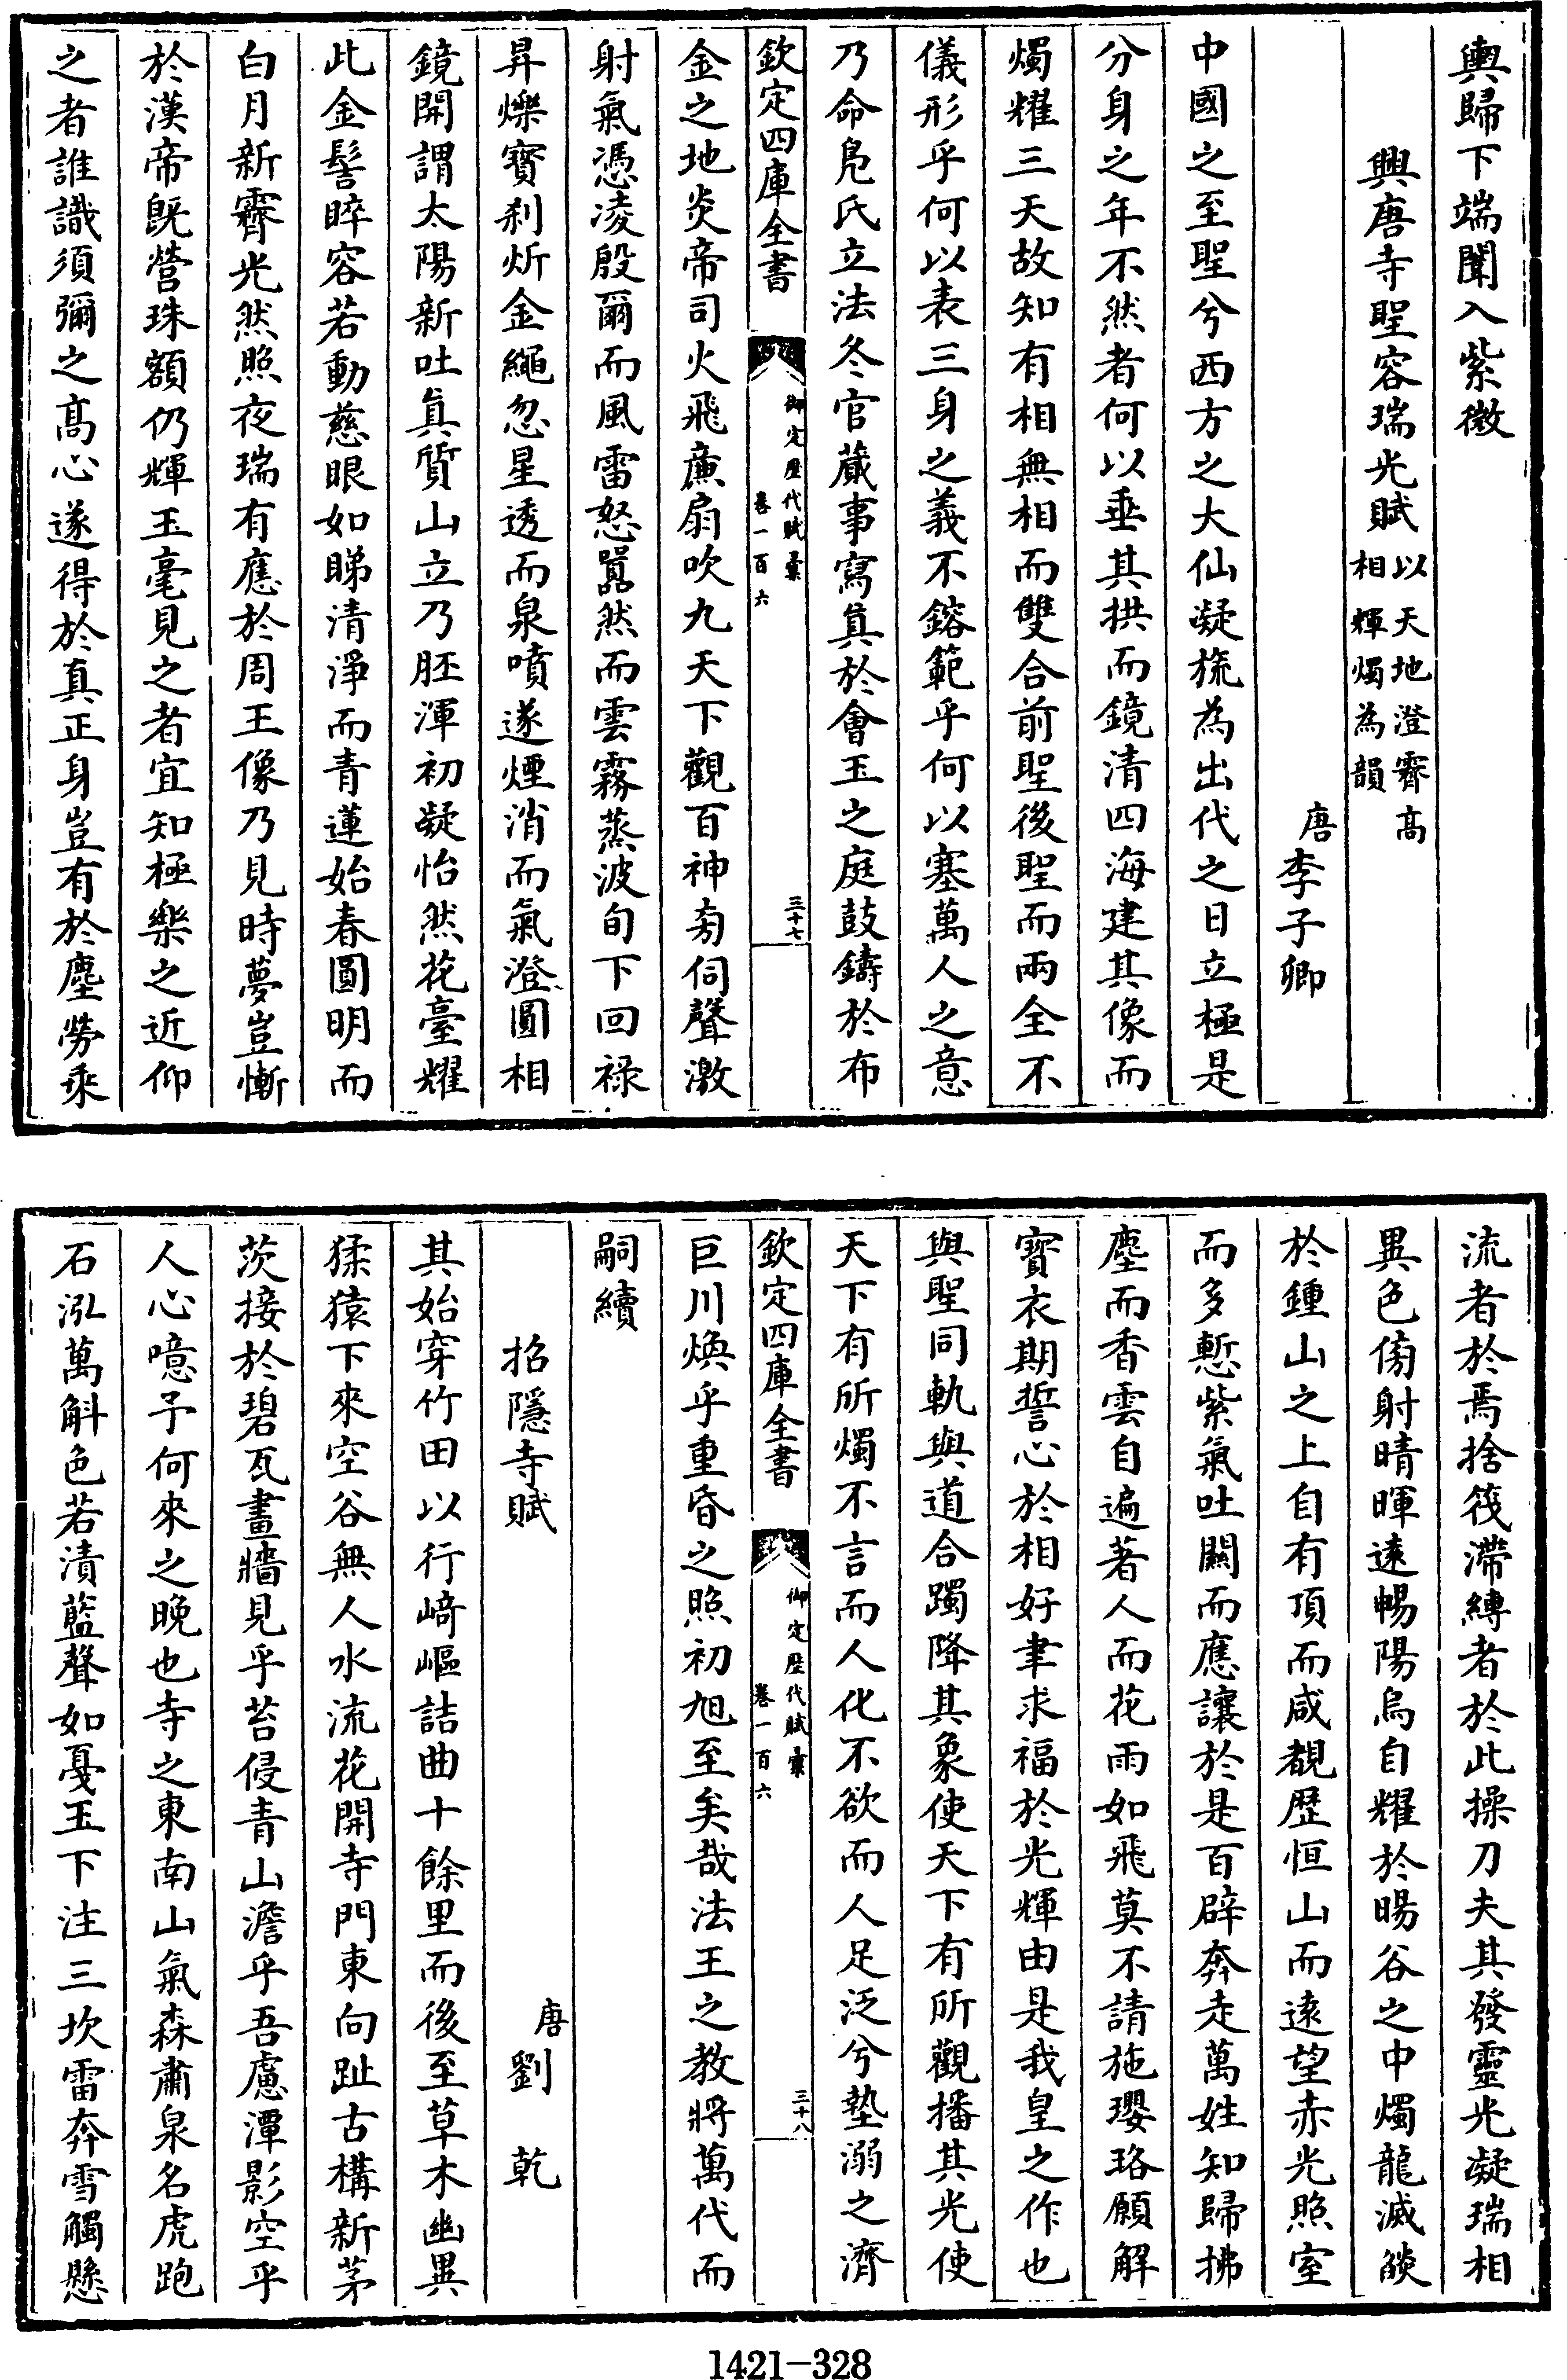 輿歸下端闈入紫微
興唐寺聖容瑞光賦以天地澄霽高相輝燭為韻
唐李子卿
中國之至聖兮西方之大仙凝旒為出代之日立極是
分身之年不然者何以垂其拱而鏡清四海建其像而
燭耀三天故知有相無相而雙合前聖後聖而兩全不
儀形乎何以表三身之義不鎔範乎何以塞萬人之意
乃命鳧氏立法冬官蕆事寫真於會玉之庭鼓鑄於布
欽定四庫全書
御定歷代賦彙
卷一百六
三十七
金之地炎帝司火飛廉扇吹九天下觀百神旁伺聲激
射氣憑凌殷爾而風雷怒囂然而雲霧蒸波旬下回祿
昇爍寶刹炘金繩忽星透而泉噴遂煙消而氣澄圓相
鏡開謂太陽新吐真質山立乃胚渾初凝怡然花臺耀
此金髻睟容若動慈眼如睇清淨而青蓮始春圓明而
白月新霽光然照夜瑞有應於周王像乃見時夢豈慚
於漢帝旣營珠額仍輝玉毫見之者宜知極樂之近仰
之者誰識須彌之高心遂得於真正身豈有於塵勞乘
流者於焉捨筏滯縛者於此操刀夫其發靈光凝瑞相
異色傍射晴暉遠暢陽烏自耀於暘谷之中燭龍滅燄
於鍾山之上自有頂而咸覩歷恒山而遠望赤光照室
而多慙紫氣吐關而應讓於是百辟奔走萬姓知歸拂
塵而香雲自遍著人而花雨如飛莫不請施瓔珞願解
寶衣期誓心於相好聿求福於光輝由是我皇之作也
與聖同軌與道合躅降其象使天下有所觀播其光使
天下有所燭不言而人化不欲而人足泛兮墊溺之濟
欽定四庫全書
御定歷代賦彙
卷一百六
三十八
巨川煥乎重昏之照初旭至矣哉法王之教將萬代而
嗣續
招隱寺賦
唐劉乾
其始穿竹田以行﨑嶇詰曲十餘里而後至草木幽異
猱猿下來空谷無人水流花開寺門東向趾古構新茅
茨接於碧瓦畫牆見乎苔侵青山澹乎吾慮潭影空乎
人心噫予何來之晚也寺之東南山氣森肅泉名虎跑
石泓萬斛色若漬藍聲如戞玉下注三坎雷奔雪觸懸
1421-328